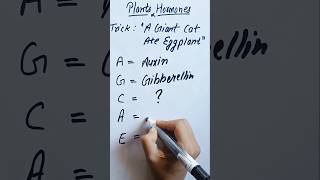 Plants Hormones
Trick: "A Giant Cat
Ate Eggplant"
A = Auxin
G = Gibberellin
C = ?
A =
E =